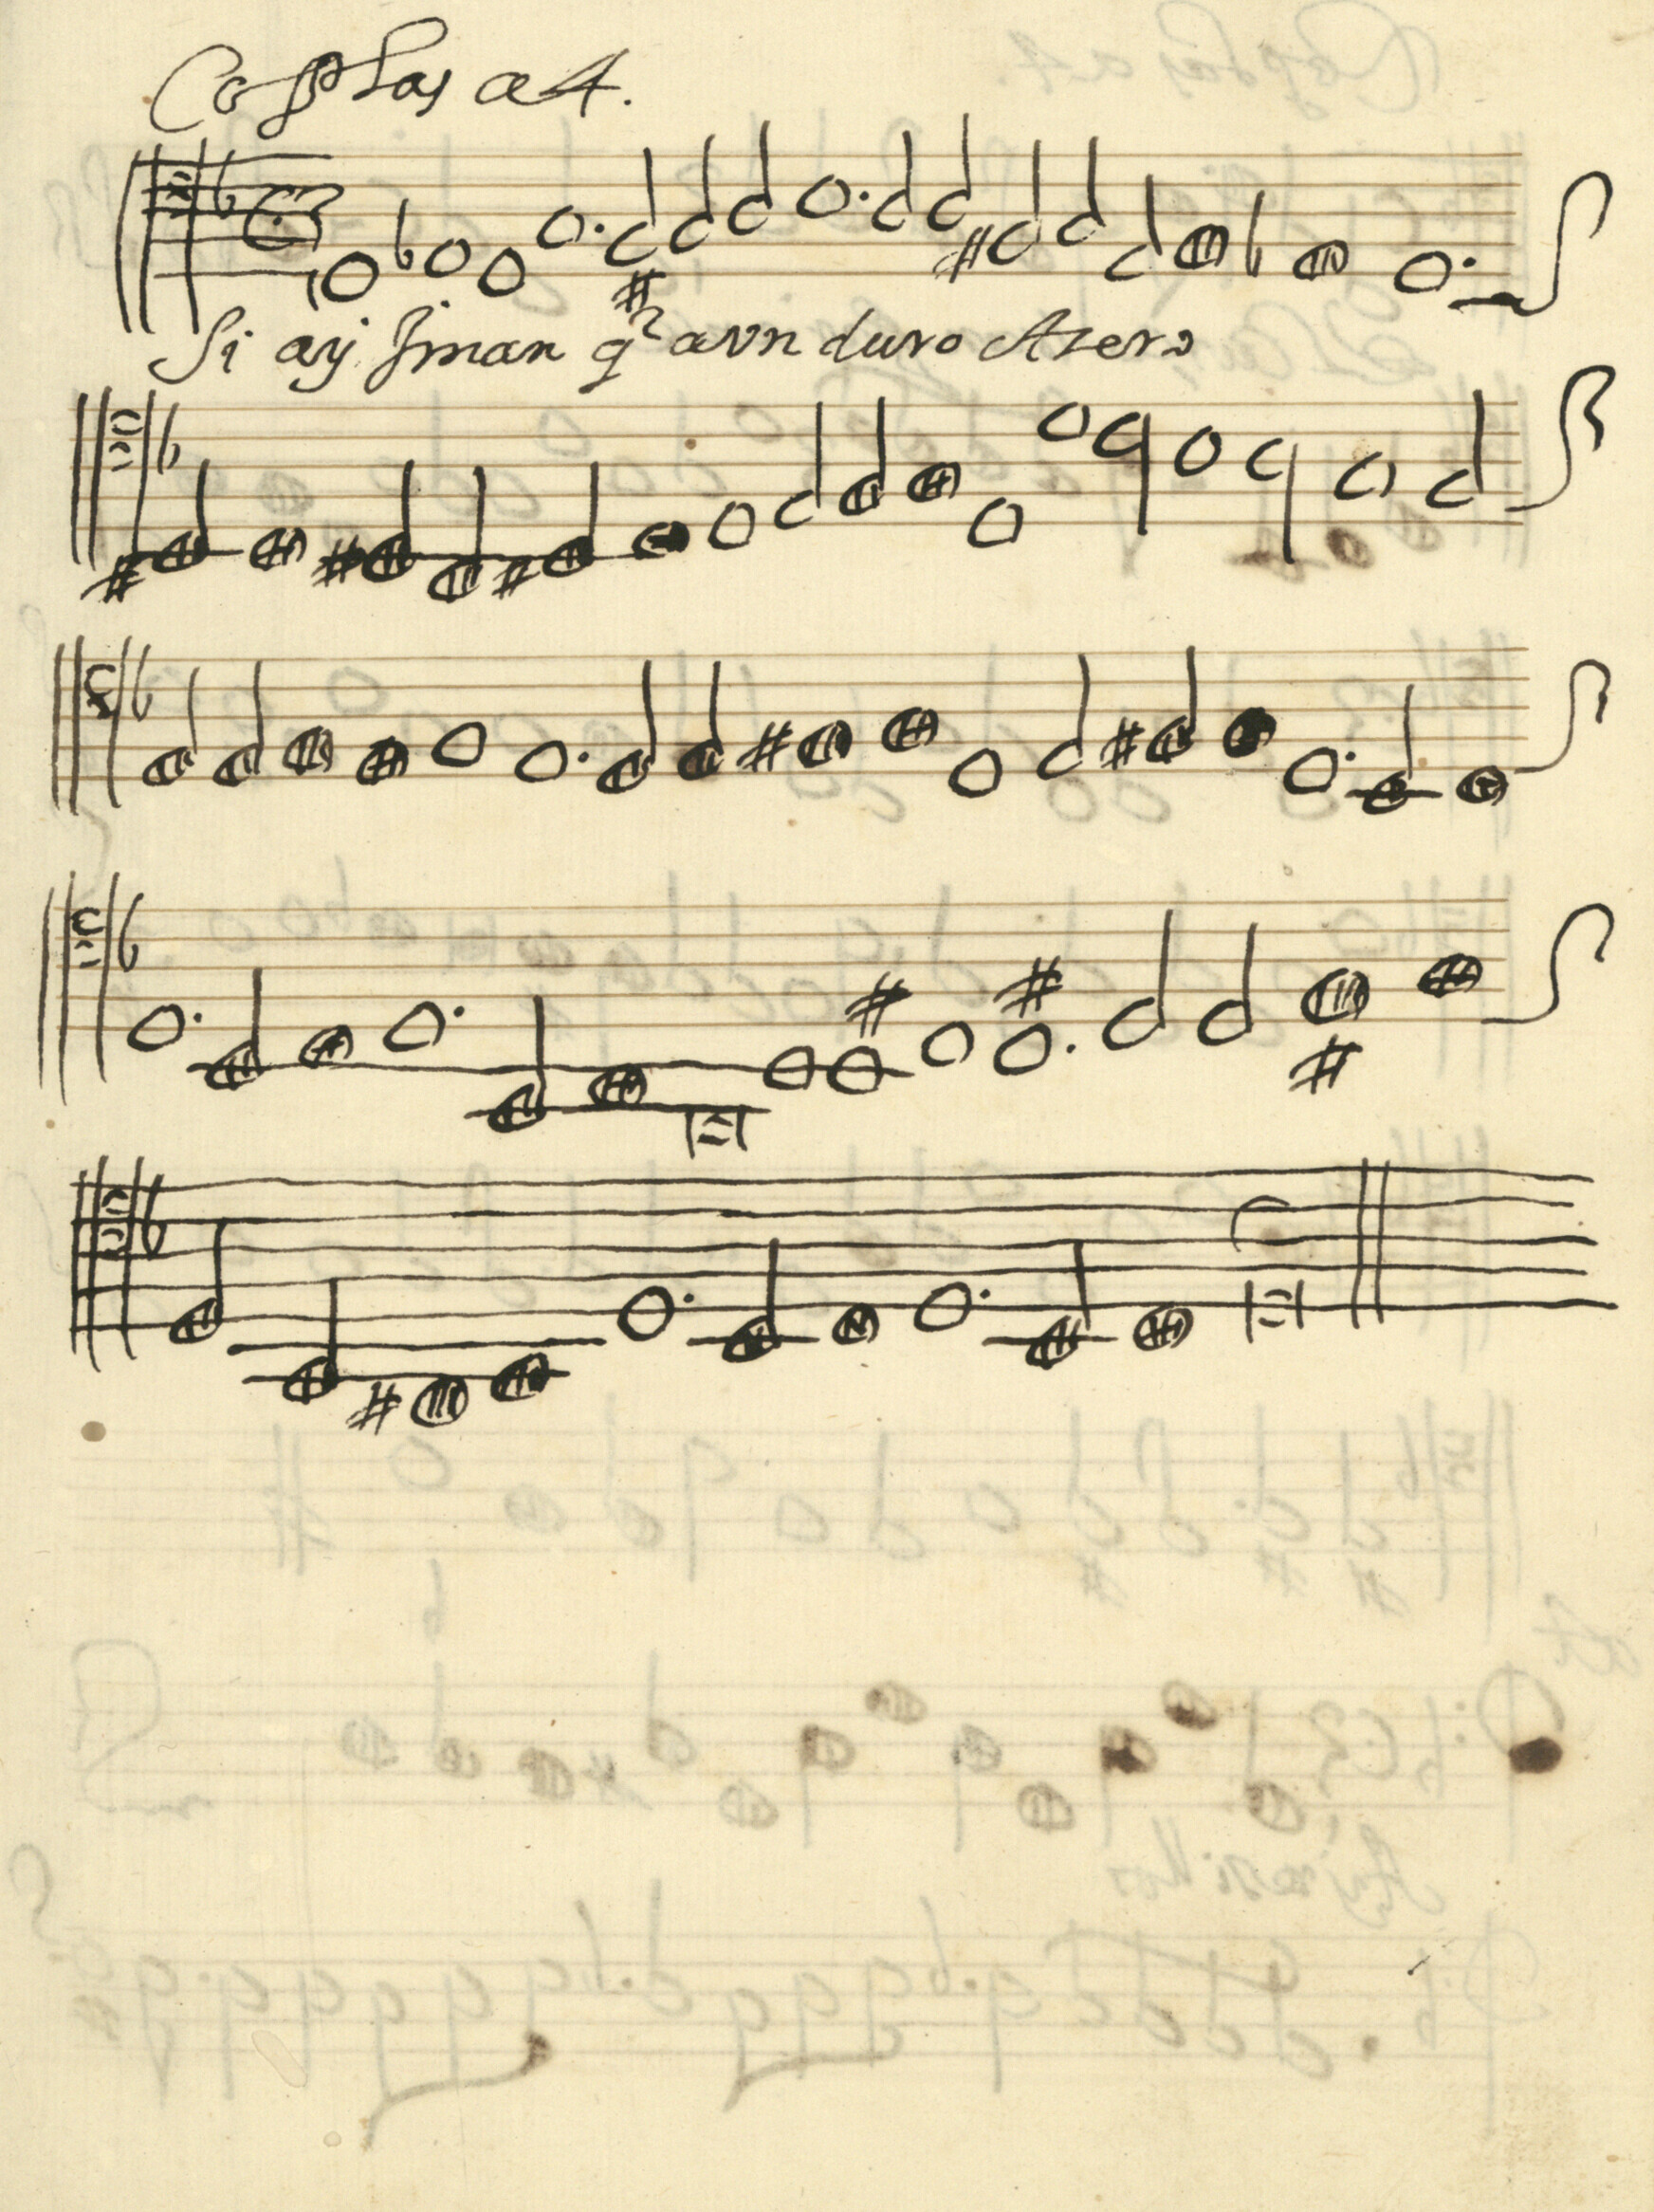 Coplas a 4.
Si ay Jman q̃ aun duro Azero